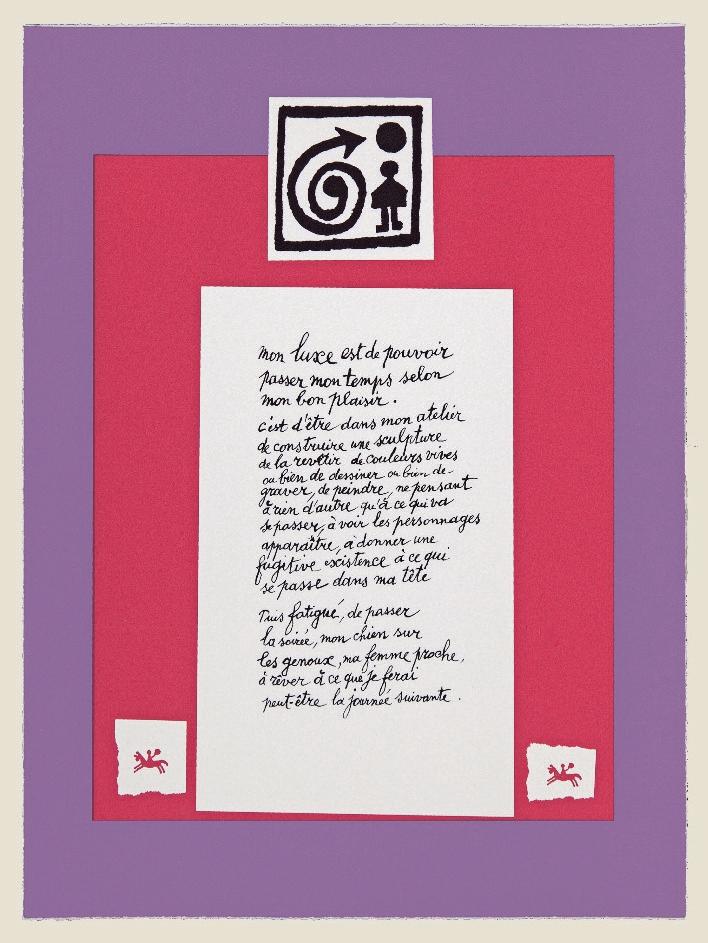 mon luxe est de pouvoir
passer mon temps selon
mon bon plaisir.
c'est d'être dans mon atelier
de construire une sculpture
de la revêtir de couleurs vives
ou bien de dessiner ou bien de-
graver, de peindre, ne pensant
à rien d'autre qu'à ce qui va
se passer, à voir les personnages
apparaître, à donner une
fugitive existence à ce qui
se passe dans ma tête
Puis fatigué, de passer
la soirée, mon chien sur
les genoux, ma femme proche,
à rêver à ce que je ferai
peut-être la journée suivante.